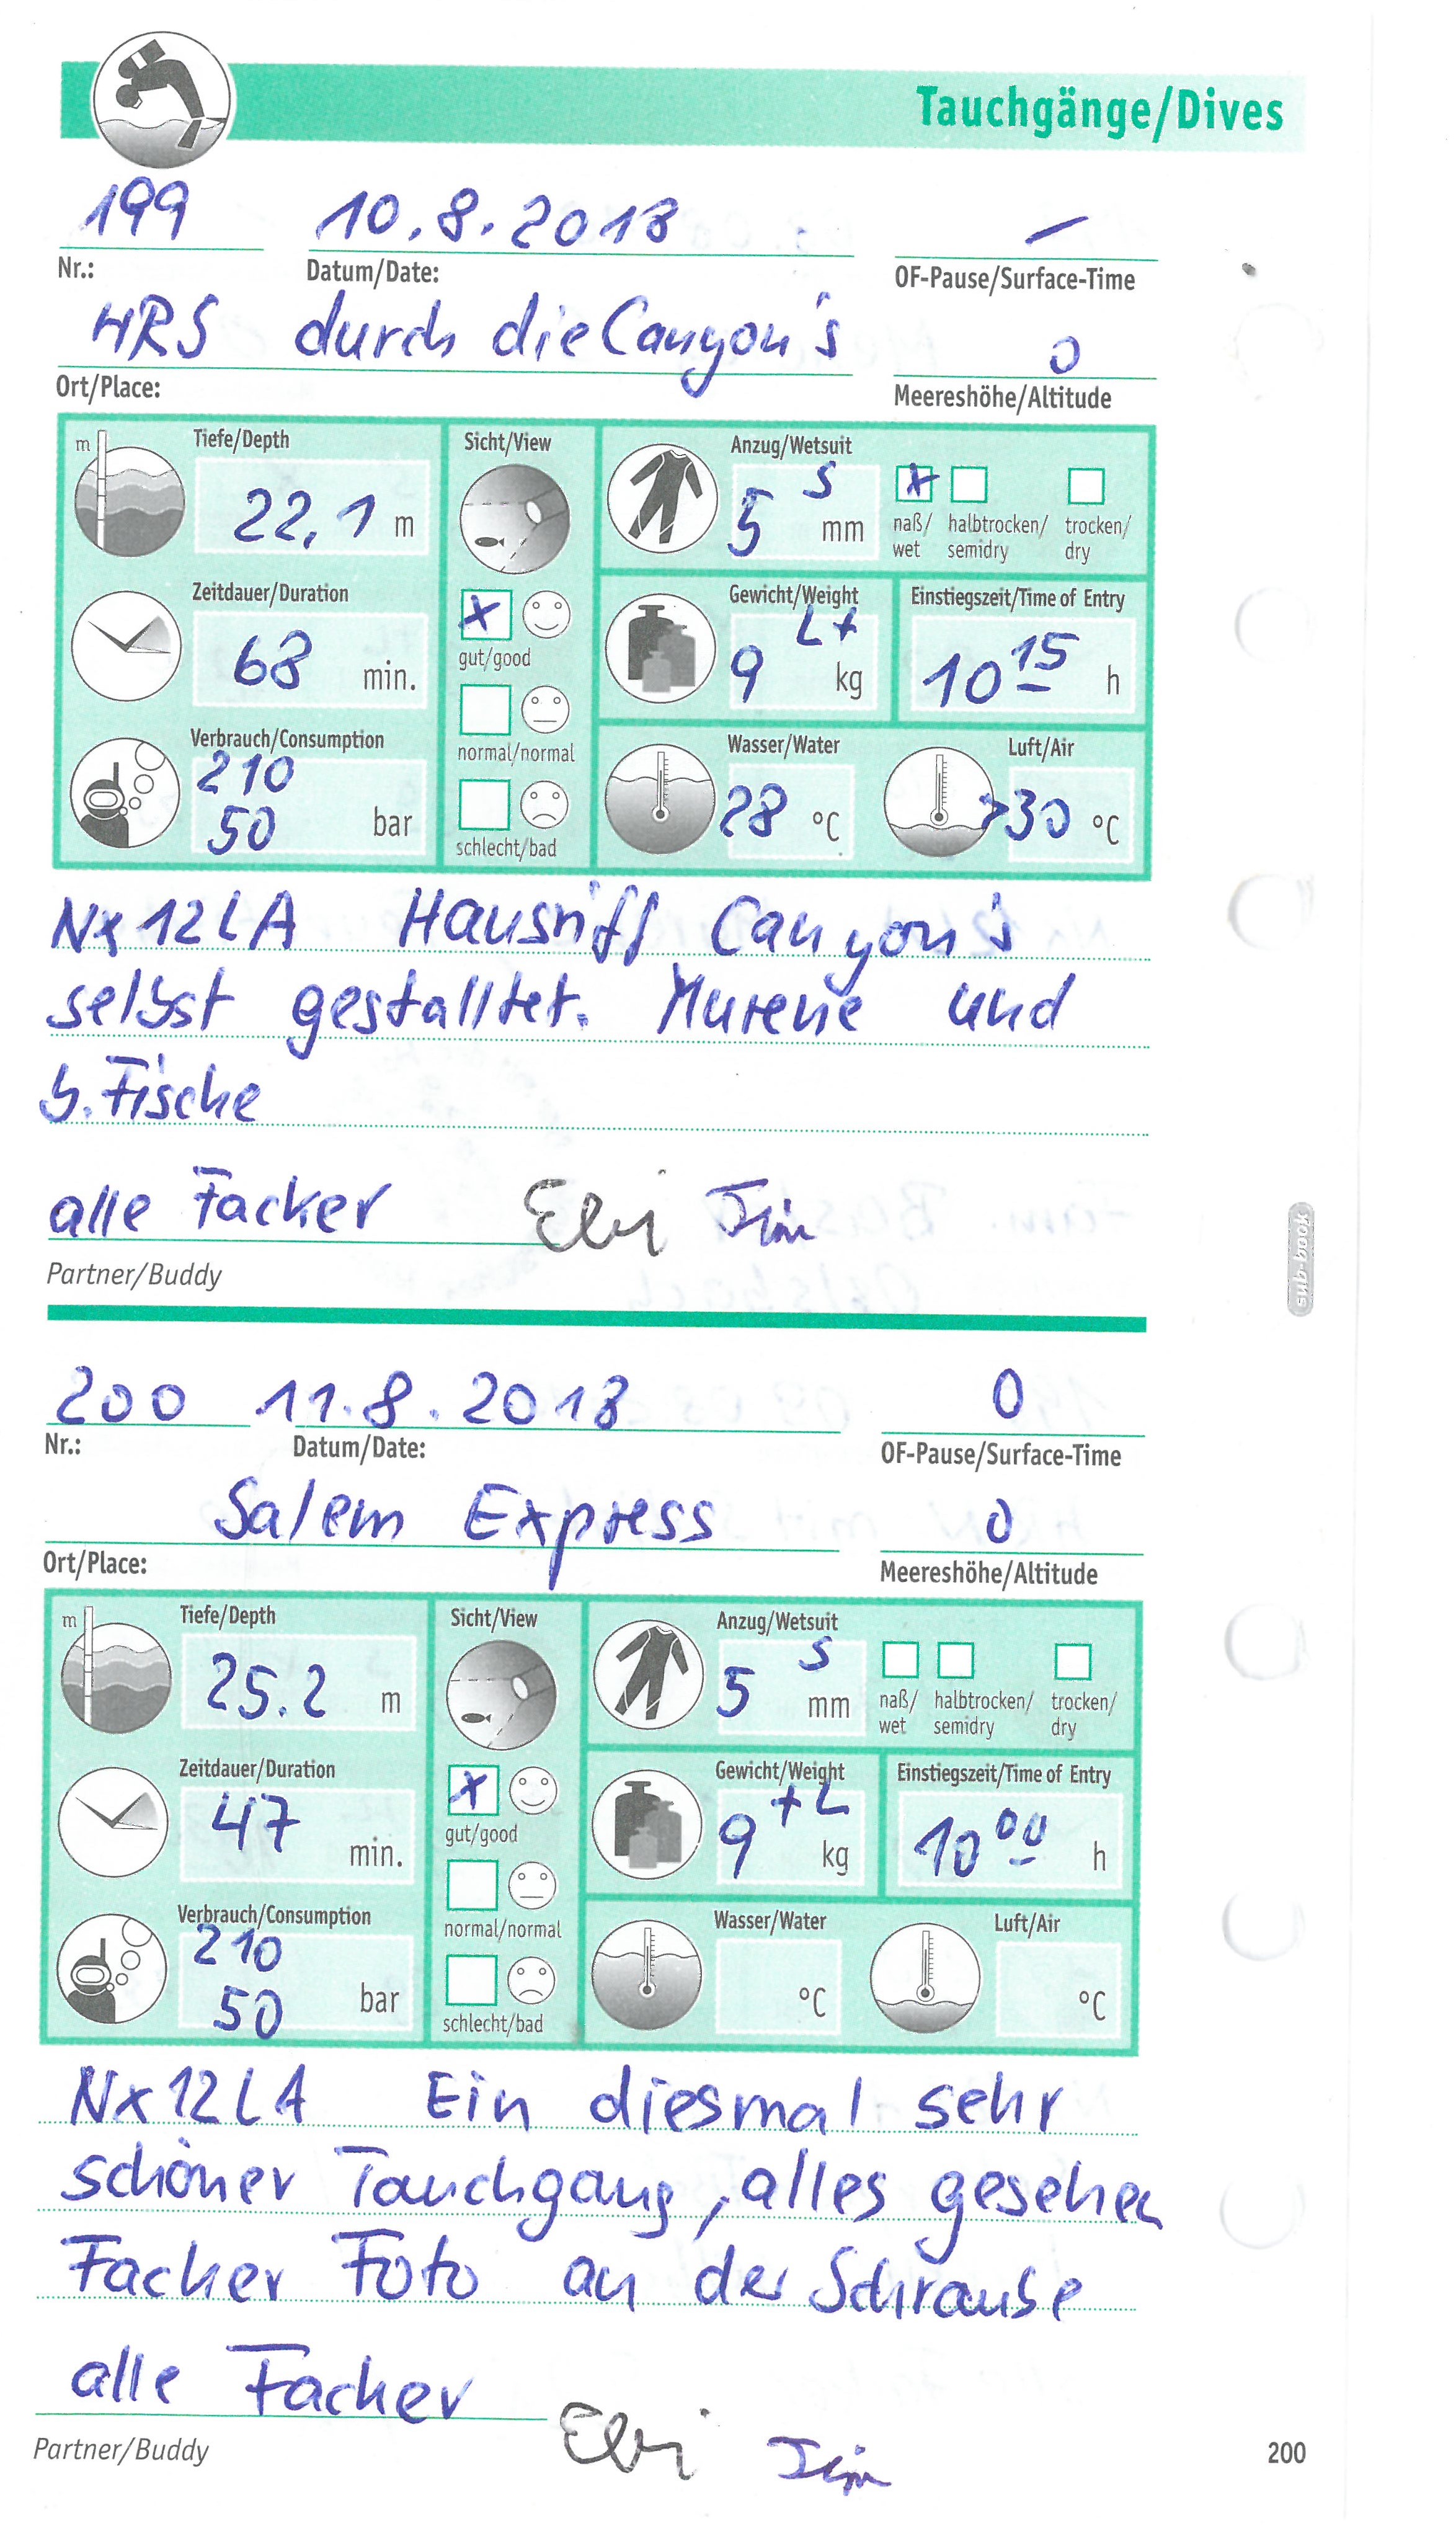 Tauchgänge/Dives
199 10.8.2018 –
Nr.: Datum/Date: OF-Pause/Surface-Time
HRS durch die Canyon's 0
Ort/Place: Meereshöhe/Altitude
m Tiefe/Depth Sicht/View Anzug/Wetsuit
22,1 m 5 S mm
naß/wet halbtrocken/semidry trocken/dry
Zeitdauer/Duration Gewicht/Weight Einstiegszeit/Time of Entry
68 min. gut/good 9 L+ kg 10 15 h
Verbrauch/Consumption normal/normal Wasser/Water Luft/Air
210
50 bar 28 °C >30 °C
schlecht/bad
Nx 12 L A Hausriff Canyon's
selbst gestalltet. Murene und
b. Fische
alle Facker Elvi Tim
Partner/Buddy
sub-book
200 11.8.2018 0
Nr.: Datum/Date: OF-Pause/Surface-Time
Salem Express 0
Ort/Place: Meereshöhe/Altitude
m Tiefe/Depth Sicht/View Anzug/Wetsuit
25.2 m 5 S mm
naß/wet halbtrocken/semidry trocken/dry
Zeitdauer/Duration Gewicht/Weight Einstiegszeit/Time of Entry
47 min. gut/good 9 +L kg 10 00 h
Verbrauch/Consumption normal/normal Wasser/Water Luft/Air
210
50 bar °C °C
schlecht/bad
Nx 12 L A Ein diesmal sehr
schöner Tauchgang, alles gesehen
Facker Foto an der Schraube
alle Facker Elvi Tim
Partner/Buddy
200